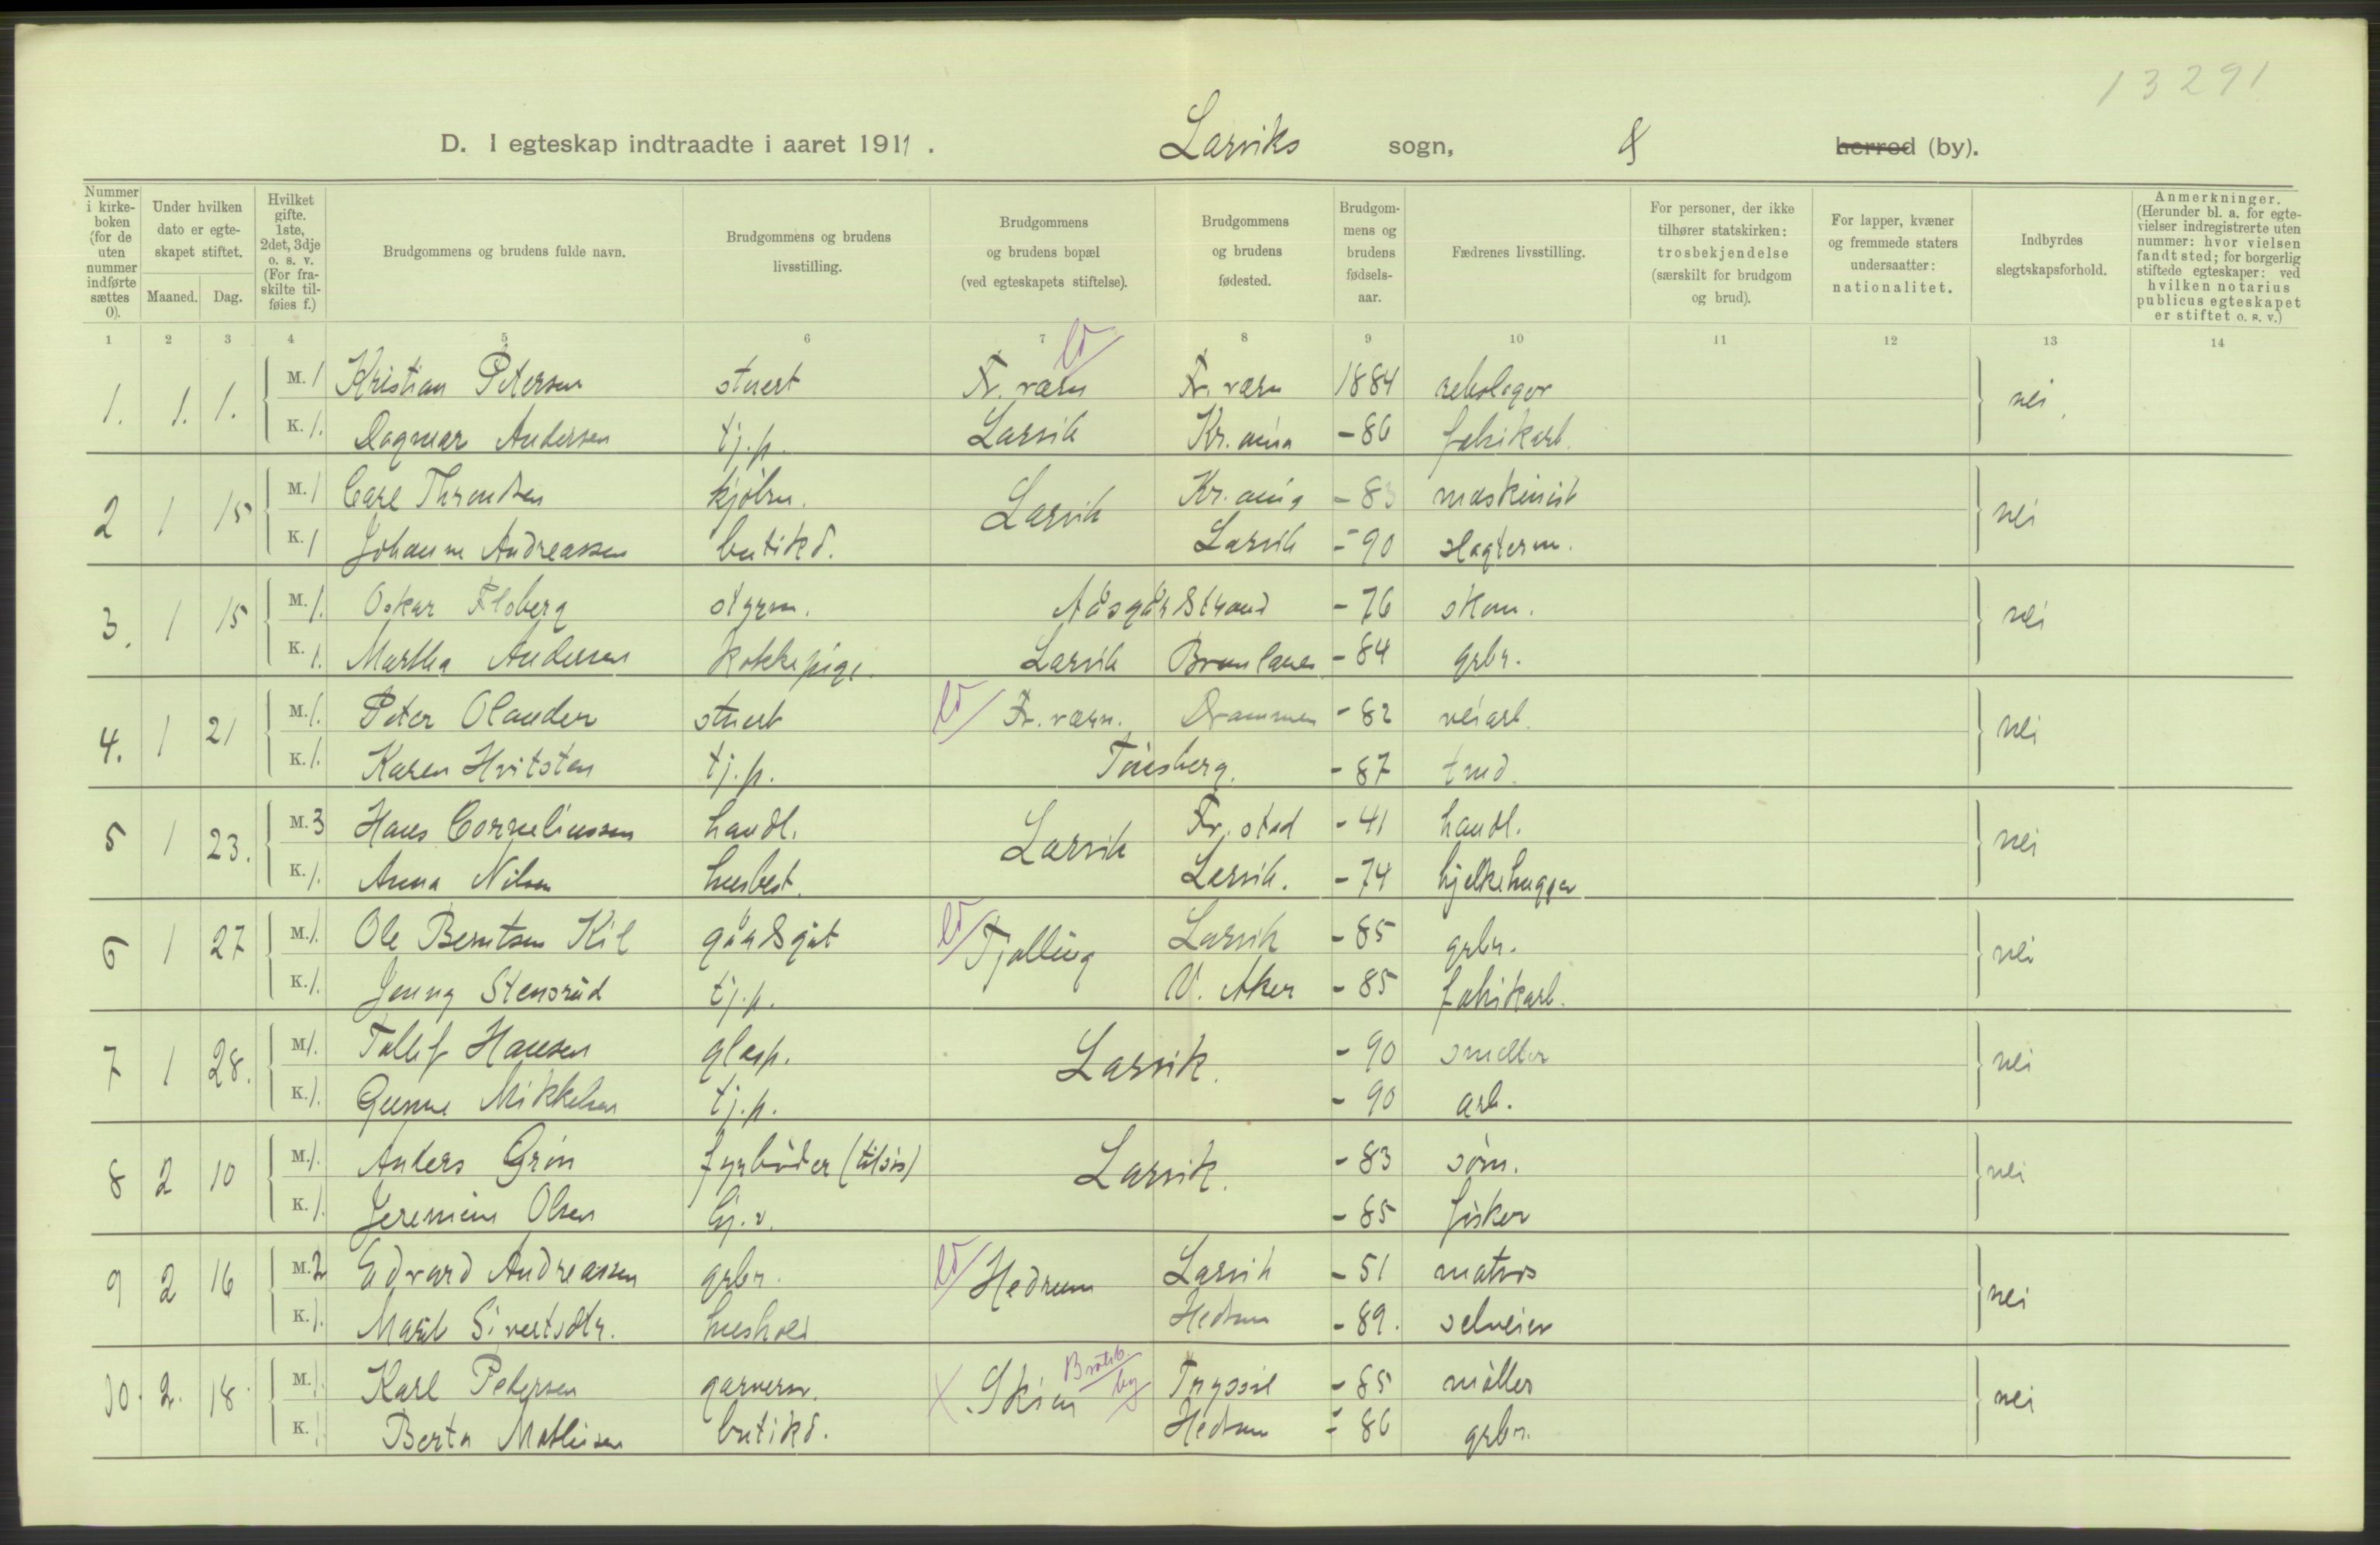 13291
D. I egteskap indtraadte i aaret 1911. Larviks sogn, & herred (by).
Nummer i kirkeboken (for de uten nummer indførte sættes 0).
Under hvilken dato er egteskapet stiftet.
Maaned. Dag.
Hvilket gifte. 1ste, 2det, 3dje o. s. v. (For fraskilte tilføies f.)
Brudgommens og brudens fulde navn.
Brudgommens og brudens livsstilling.
Brudgommens og brudens bopæl (ved egteskapets stiftelse).
Brudgommens og brudens fødested.
Brudgommens og brudens fødselsaar.
Fædrenes livsstilling.
For personer, der ikke tilhører statskirken: trosbekjendelse (særskilt for brudgom og brud).
For lapper, kvæner og fremmede staters undersaatter: nationalitet.
Indbyrdes slegtskapsforhold.
Anmerkninger. (Herunder bl. a. for egtevielser indregistrerte uten nummer: hvor vielsen fandt sted; for borgerlig stiftede egteskaper: ved hvilken notarius publicus egteskapet er stiftet o. s. v.)
1 2 3 4 5 6 7 8 9 10 11 12 13 14
1. 1. 1. M. 1 Kristian Petersen stuert Fr. værn Fr. værn 1884 rebslager nei.
K. 1. Dagmar Andersen tj.p. Larvik Kr.ania -86 fabrikarb.
2 1 15 M. 1 Carl Throndsen kjøbm. Larvik Kr.ania -83 maskinist nei
K. 1 Johanne Andreassen butikd. Larvik -90 slagterm.
3. 1 15 M. 1. Oskar Floberg styrm. Aasgårdstrand -76 skom. nei
K. 1. Martha Andersen kokkepige. Larvik Brunlanes -84 grbr.
4. 1 21 M. 1. Peter Olander stuert Fr. værn. Drammen -82 veiarb. nei
K. 1. Karen Hvitsten tj.p. Tønsberg. -87
5 1 23. M. 3 Hans Corneliussen handl. Larvik Fr.stad -41 handl. nei
K. 1. Anna Nilsen husbest. Larvik. -74 bjelkehugger
6 1 27 M. 1. Ole Berntsen Kil gårdsgut Tjølling Larvik -85 grbr. nei
K. 1. Jenny Stensrud tj.p. V. Aker -85 fabrikarb.
7 1 28. M 1. Tollef Hansen glasp. Larvik. -90 smelter nei
K. 1. Gunne Mikkelsen tj.p. -90 arb.
8 2 10 M 1. Anders Grøn fyrbøder (tilsjøs) Larvik. -83 søm. nei
K. 1. Olsen -85 fisker
9 2 16 M. 2 Edvard Andreassen grbr. Hedrum Larvik -51 matros nei
K. 1. Marit Sivertsdtr. hushold Hedrum -89. selveier
10. 2. 18. M. 1. Karl Petersen garverm. Skien Bratsb. by Trysil -85 møller nei
K. 1 Berta Mathisen butikd. Hedrum -86 grbr.